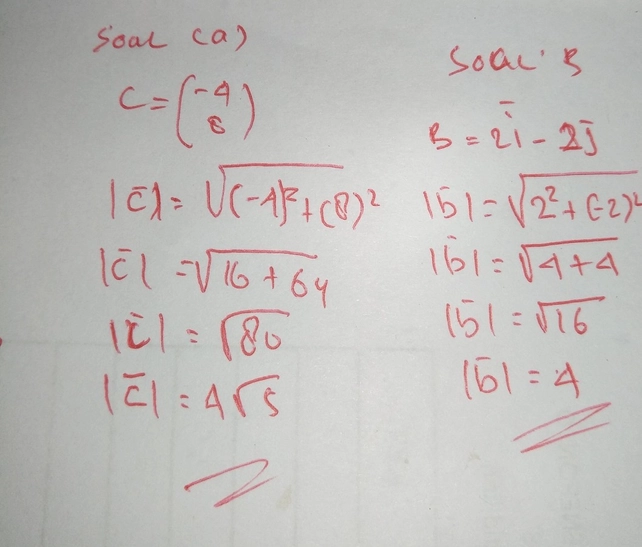 Soal (a)
C = (-4 8)
|c̄| = √(-4)² + (8)²
|c̄| = √16 + 64
|c̄| = √80
|c̄| = 4√5
Soal B
B = 2ī - 2j̄
|b̄| = √2² + (-2)²
|b̄| = √4 + 4
|b̄| = √16
|b̄| = 4